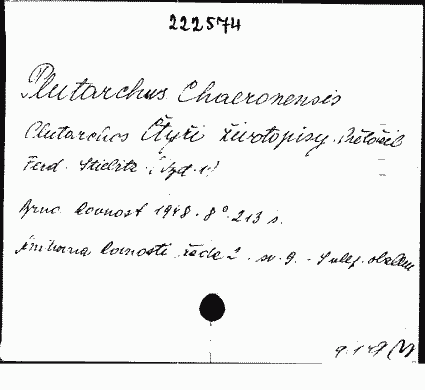 222574
Plutarchus Chaeronensis
Plutarchos Čtyři životopisy. Přeložil
Ferd. Stiebitz. (Vyd. 1.)
Brno Rovnost 1948. 8° 213 s.
Knihovna Rovnosti řada 2. sv. 9. - S